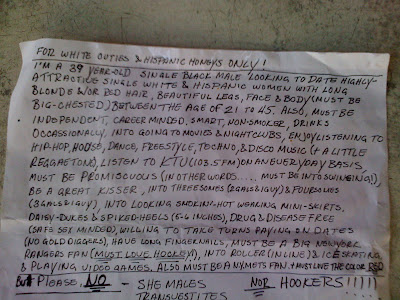 FOR WHITE CUTIES & HISPANIC HONEYS ONLY!
I'M A 39 YEAR-OLD SINGLE BLACK MALE LOOKING TO DATE HIGHLY-
ATTRACTIVE SINGLE WHITE & HISPANIC WOMEN WITH LONG
BLONDE &/OR RED HAIR, BEAUTIFUL LEGS, FACE & BODY (MUST BE
BIG-CHESTED) BETWEEN THE AGE OF 21 TO 45. ALSO, MUST BE
INDEPENDENT, CAREER MINDED, SMART, NON-SMOKER, DRINKS
OCCASSIONALLY, INTO GOING TO MOVIES & NIGHTCLUBS, ENJOY LISTENING TO
HIP-HOP, HOUSE, DANCE, FREESTYLE, TECHNO, & DISCO MUSIC (+ A LITTLE
REGGAETON), LISTEN TO KTU (103.5 FM) ON AN EVERYDAY BASIS
MUST BE PROMISCUOUS (IN OTHER WORDS..... MUST BE INTO SWINGING!),
BE A GREAT KISSER, INTO THREESOMES (2 GALS & 1 GUY) & FOURSOMES
(3 GALS & 1 GUY), INTO LOOKING SMOKIN-HOT WEARING MINI-SKIRTS,
DAISY-DUKES & SPIKED-HEELS (5-6 INCHES), DRUG & DISEASE FREE
(SAFE SEX MINDED), WILLING TO TAKE TURNS PAYING ON DATES
(NO GOLD DIGGERS), HAVE LONG FINGERNAILS, MUST BE A BIG NEW YORK
RANGERS FAN (MUST LOVE HOCKEY), INTO ROLLER (INLINE) & ICE SKATING,
& PLAYING VIDEO GAMES. ALSO MUST BE A NY METS FAN. + MUST LOVE THE COLOR RED
BUT PLEASE, NO - SHE MALES NOR HOOKERS!!!!!
TRANSVESTITES